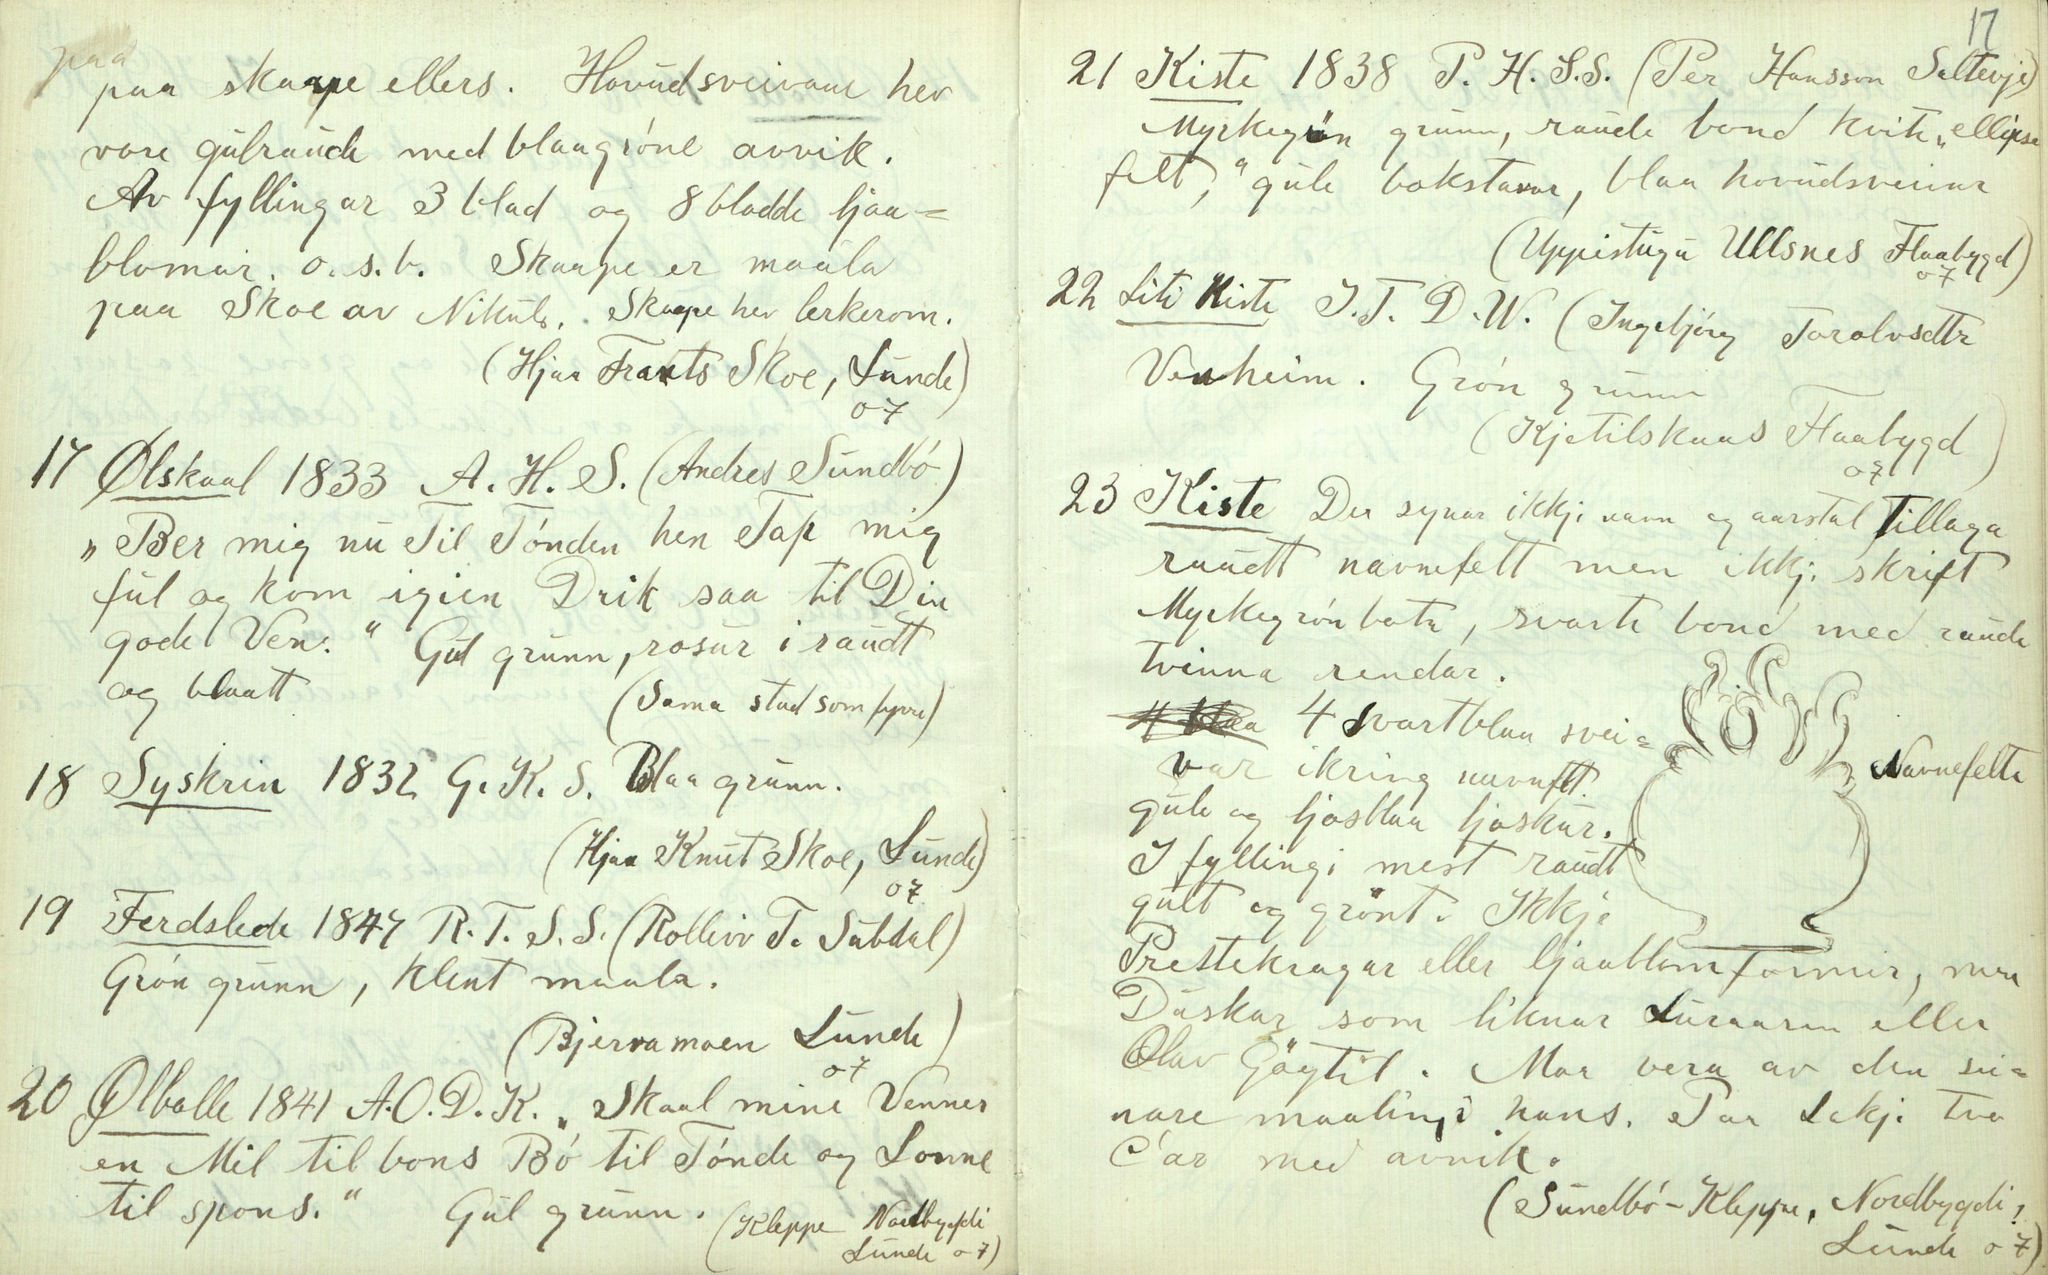 paa
paa skaape ellers. Hovudsveivane hev
vore gulraude med blaagróne avvik.
Av fyllingar 3 blad og 8 bladde ljaa=
blomar. o.s.b. Skaape er maala
paa Skoe av Nikuls. Skaape hev lerkerom.
(Hjaa Frants Skoe, Lunde)
07
17 Ølskaal 1833 A. H. S. (Andres Sundbó)
„Ber mig nu Til Tónden hen Tap mig
ful og kom igien Drik saa til Din
gode Ven." Gul grunn, rosur i raudt
og blaatt (Sama stad som fyrre)
18 Syskrin 1832 G. K. S. Blaa grunn.
(Hjaa Knut Skoe, Lunde)
07
19 Ferdslede 1847 R. T. S. S. (Rolleiv T. Subdal)
Grón grunn, klent maala.
(Bjervamoen Lunde)
07
20 Ølbolle 1841 A. O. D. K. „Skaal mine Venner
en Mil til bons Bó til Tónde og Lonne
til spons." Gul grunn. (Kleppe Nordbygdi
Lunde 07)
17
21 Kiste 1838 P. H. S. S. (Per Hansson Saltevje)
Myrkegrön grunn, raude bond kvite „ellipse
felt," gule bokstavar, blaa hovudsveivar
(Uppistugu Ullsnes Flaabygd)
07
22 Liti Kiste I. T. D. W. (Ingebjórg Torolvsdtr
Venheim. Grón grunn
(Kjetilskaas Flaabygd)
07
23 Kiste Der synar ikkje navn og aarstal Tillaga
raudtt navnefelt men ikkje skrift
Myrkegrón botn, svarte bond med raude
tvinna rendar.
4 blaa 4 svartblaa svei=
var ikring navneflt.
gule og ljosblaa ljoskur.
I fyllingi mest raudt
gult og grönt. Ikkje
Navnefelte
Prestekragar eller ljaablomformir, men
Duskar som liknar Luraaren eller
Olav Göytil. Maa vera av den sei=
nare maalingi hans. Par Lekje tvo
C'ar med avvik.
(Sundbó-Kleppe, Nordbygdi,
Lunde 07)